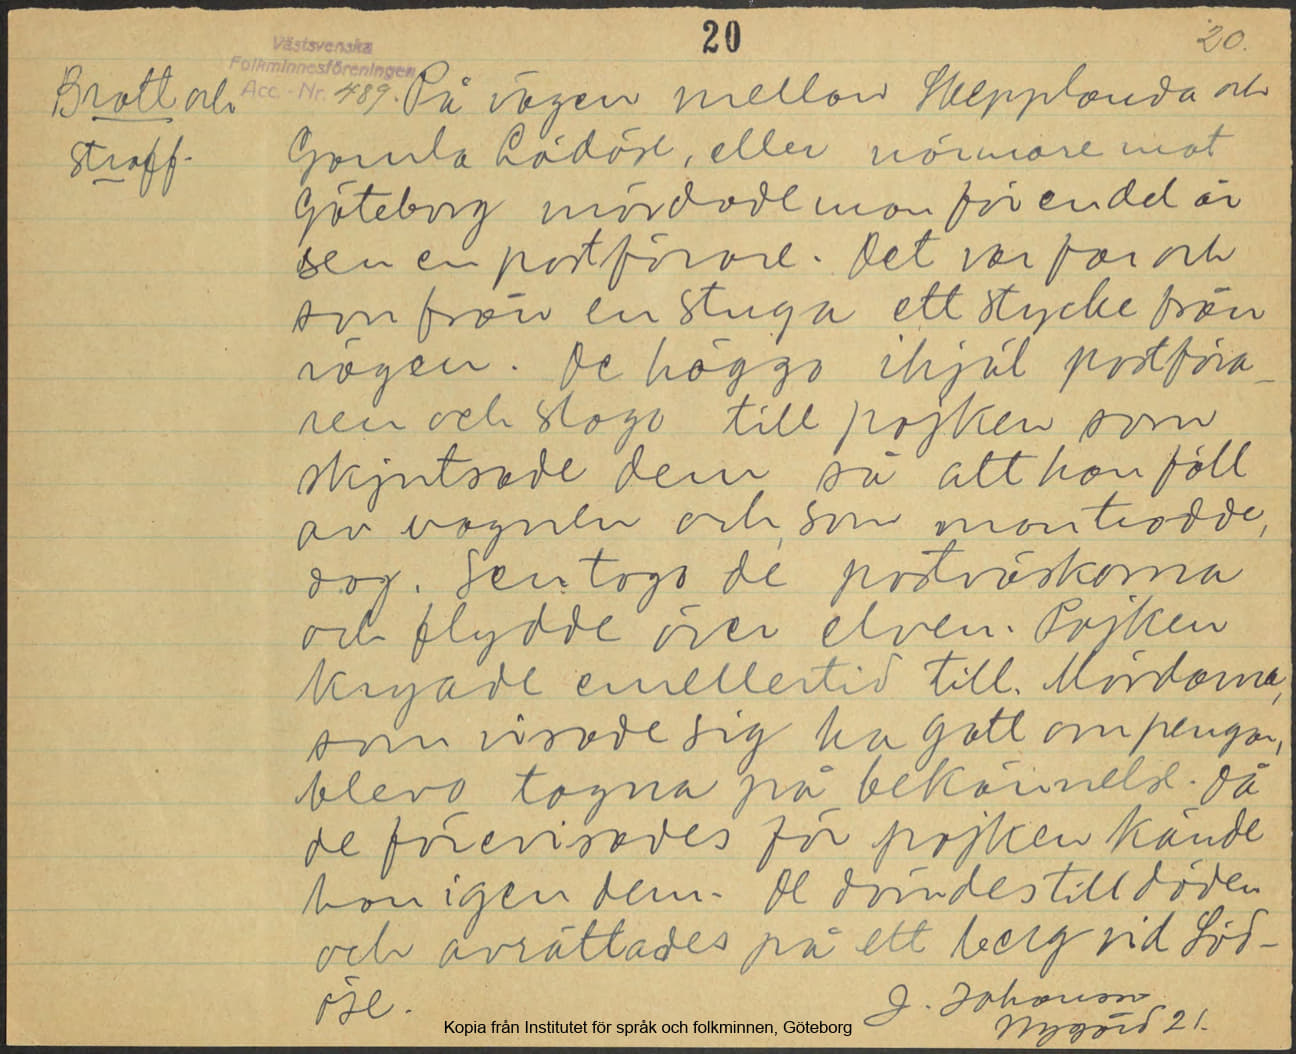 20
20.
Västsvenska
Folkminnesföreningen
Acc.-Nr. 489.
Brott och
straff.
På vägen mellan Skepplanda och
Gamla Lödöse, eller närmare mot
Göteborg mördade man för en del år
sen en postförare. Det var far och
son från en stuga ett stycke från
vägen. De höggo ihjäl postföra-
ren och slogo till pojken som
skjutsade dem så att han föll
av vagnen och, som man trodde,
dog. Sen togo de postväskorna
och flydde över elven. Pojken
kryade emellertid till. Mördarna,
som visade sig ha gott om pengar,
blevo tagna på bekännelse. Då
de förevisades för pojken kände
han igen dem. De dömdes till döden
och avrättades på ett berg vid Löd-
öse.
J. Johansson
Nygård 21.
Kopia från Institutet för språk och folkminnen, Göteborg